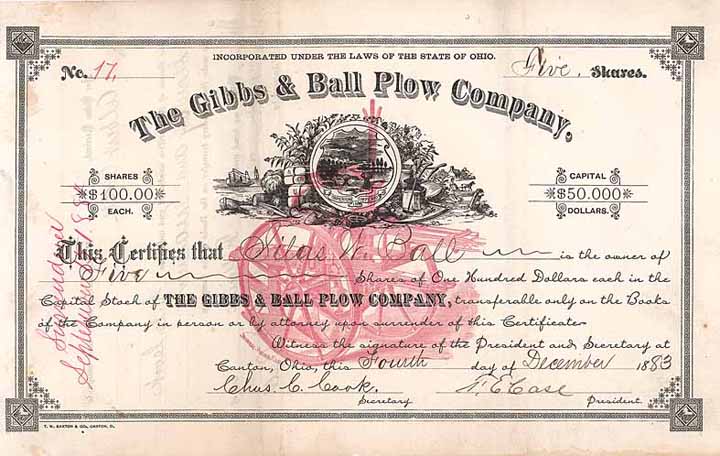 INCORPORATED UNDER THE LAWS OF THE STATE OF OHIO.
No. 17. Five. Shares.
The Gibbs & Ball Plow Company,
SHARES
$100.00
EACH.
CAPITAL
$50.000
DOLLARS.
Surrendered
September
This Certifies that Silas W. Ball is the owner of
Five Shares of One Hundred Dollars each in the
Capital Stock of THE GIBBS & BALL PLOW COMPANY, transferable only on the Books
of the Company in person or by attorney upon surrender of this Certificate.
Witness the signature of the President and Secretary at
Canton, Ohio, this Fourth day of December 1883
Chas. C. Cook. N. E. Case
Secretary President.
T. W. SAXTON & CO., CANTON, O.